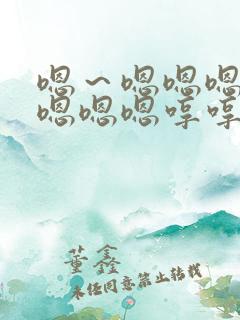 嗯～嗯嗯嗯
嗯嗯嗯哼哼
董鑫
未经同意禁止转载